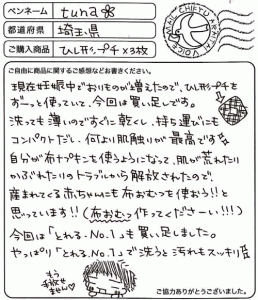 ペンネーム tuna
都道府県 埼玉県
ご購入商品 ひし形プチ×3枚
ご自由に商品に関するご感想などお書きください。
現在妊娠中でおりものが増えたので、ひし形プチを
ずーっと使っていて、今回は買い足しです。
洗っても薄いのですぐに乾くし、持ち運びにも
コンパクトだし、何より肌触りが最高です
自分が布ナプキンを使うようになって、肌が荒れたり
かぶれたりのトラブルから解放されたので、
産まれてくる赤ちゃんにも布おむつを使おう!!と
思っています!!(布おむつ作ってくださーい!!!)
今回は「とれる・No.1」も買い足しました。
やっぱり「とれる・No.1」で洗うと汚れもスッキリ
もう
手放せ
ません
ご協力ありがとうございました。